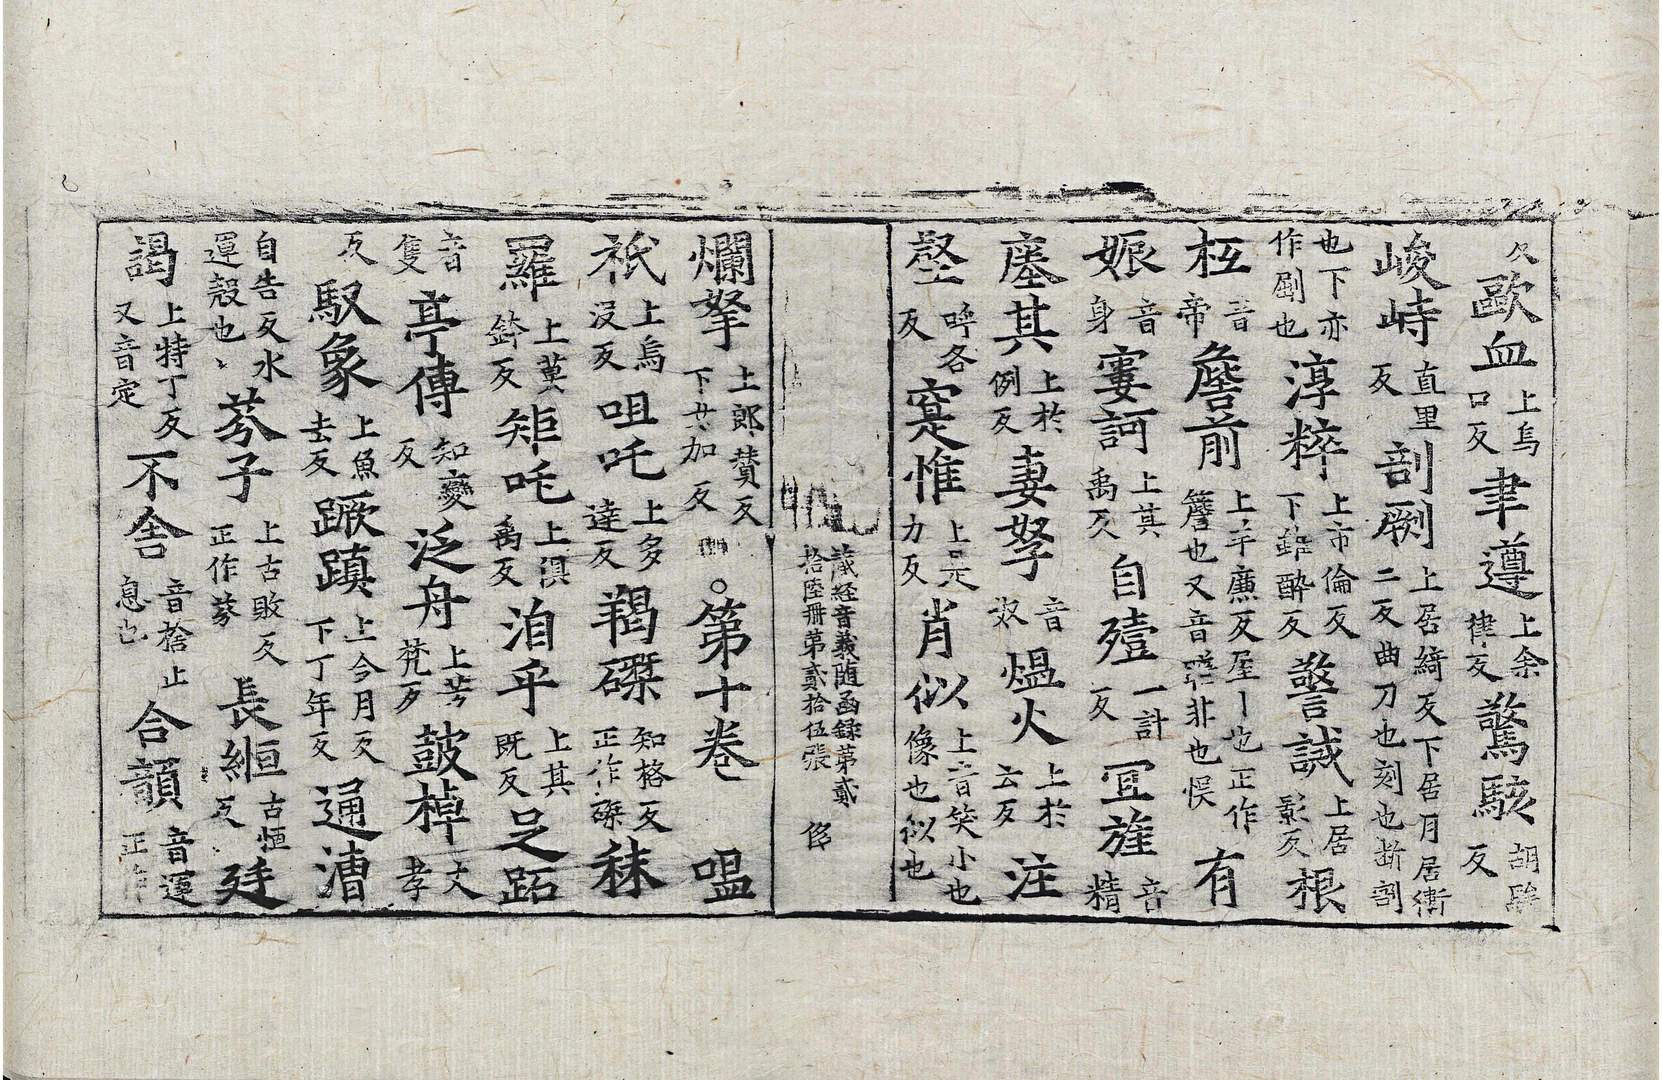 夂歐血上烏口反聿遵上余律反驚駭胡騃反
峻峙直里反剞劂上居綺反下居月居衛二反曲刀也刻也斷割
也下亦作劂也淳粹上市倫反下雖醉反警誡上居影反根
柢音帝詹前上羊廉反屋丨也正作簷也又音非也悮有
娠音身寠訶上其禹反自殪一計反罝旌音精
瘞其上於例反妻孥音奴熅火上於云反注
壑呼各反寔惟上是力反肖似上音笑小也像也似也
藏經音義隨函録第貳
拾陸冊第貳拾伍張
爛拏上郎賛反下女加反第十卷嗢
祇上烏沒反咀吒上多達反羯磔知格反正作磔秣
羅上莫鉾反矩吒上俱禹反洎乎上其既反足跖
音隻亭傳知變反泛舟上芳梵反鼓棹丈孝
反馭象上魚去反蹶蹎上今月反下丁年反通漕
自告反水運穀也芥子上古敗反正作芥長絙古恒反廷
謁上特丁反又音定不舍音捨止息也合韻音運正作